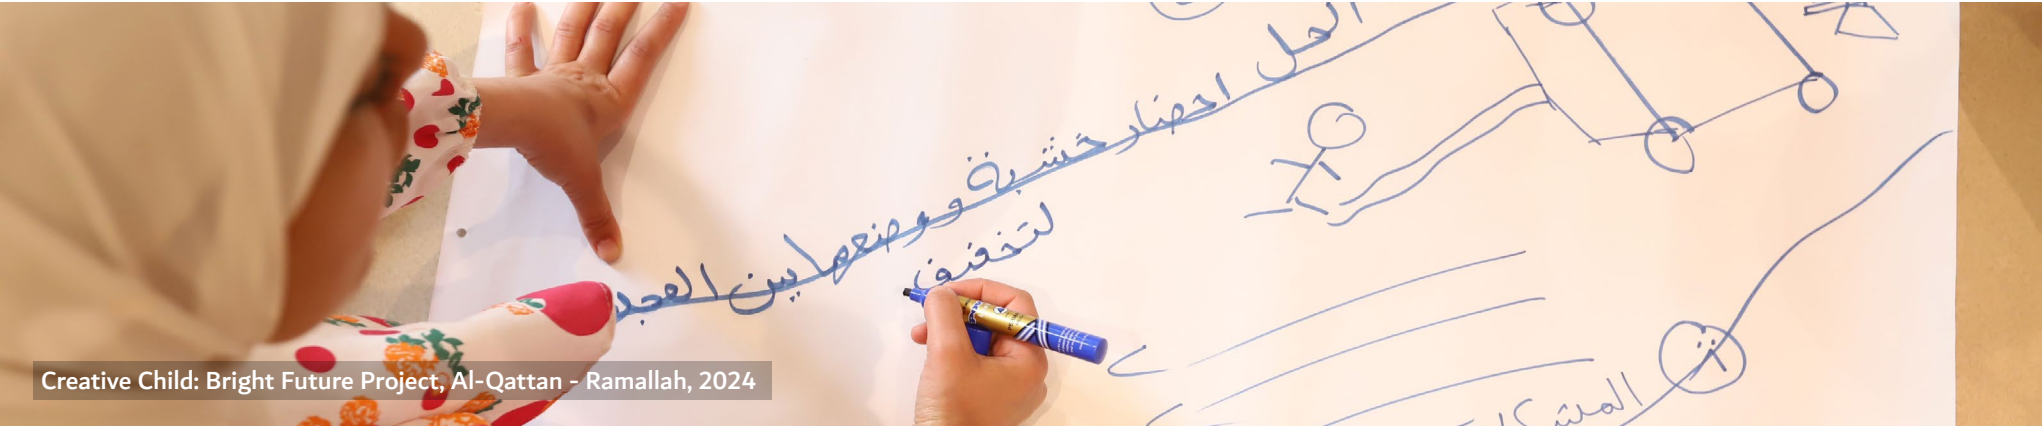 الحل احضار خشبة ووضعها بين العجد
لتخفيف
ت
المشكل
Creative Child: Bright Future Project, Al-Qattan - Ramallah, 2024